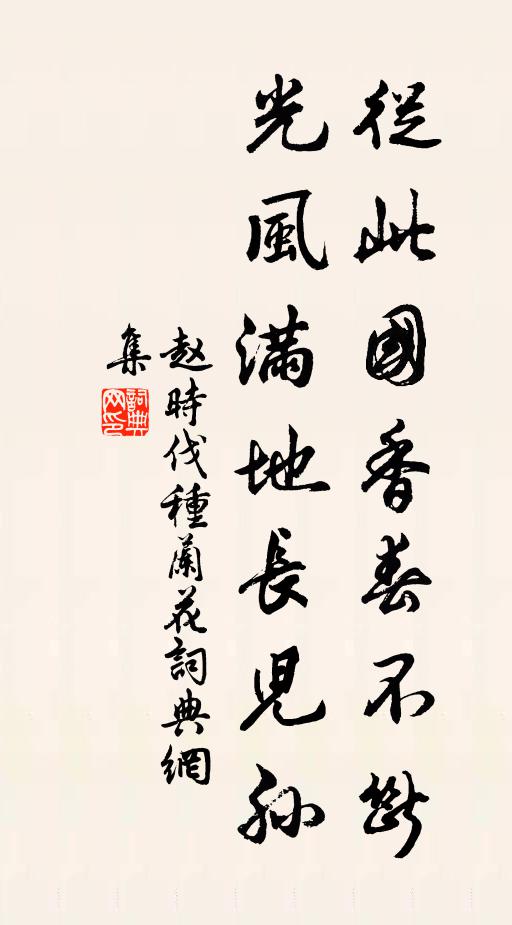 從此國香春不斷
光風滿地長児孙
赵時伐種蘭花詞典網
集
詞典
网印